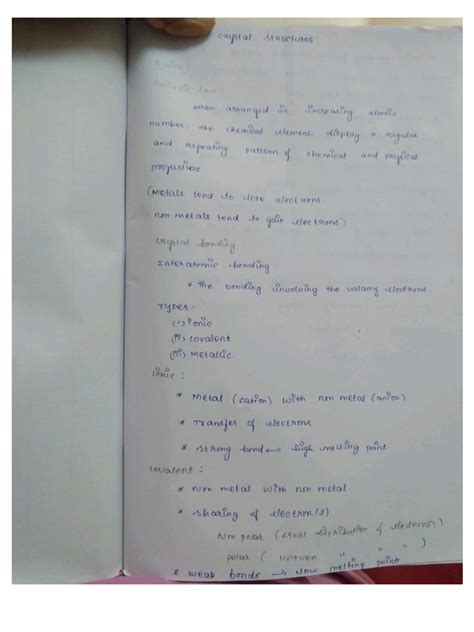 crystal structures:
Periodic law:
when arranged in increasing atomic
number, the chemical elements display a regular
and repeating pattern of chemical and physical
properties
(Metals tend to lose electrons
non metals tend to gain electrons)
crystal bonding
Interatomic bonding
* the bonding involving the valany electrons.
Types:
(i) ionic
(ii) covalent
(iii) metallic
ionic :
* Metal (cation) with non metal (anion)
* Transfer of electrons
* strong bond → high melting point
covalent :
* Non metal with non metal.
* sharing of electron(s).
Non polar (equal distribution of electrons)
polar ( uneven " " " )
* weab bonds → low melting points